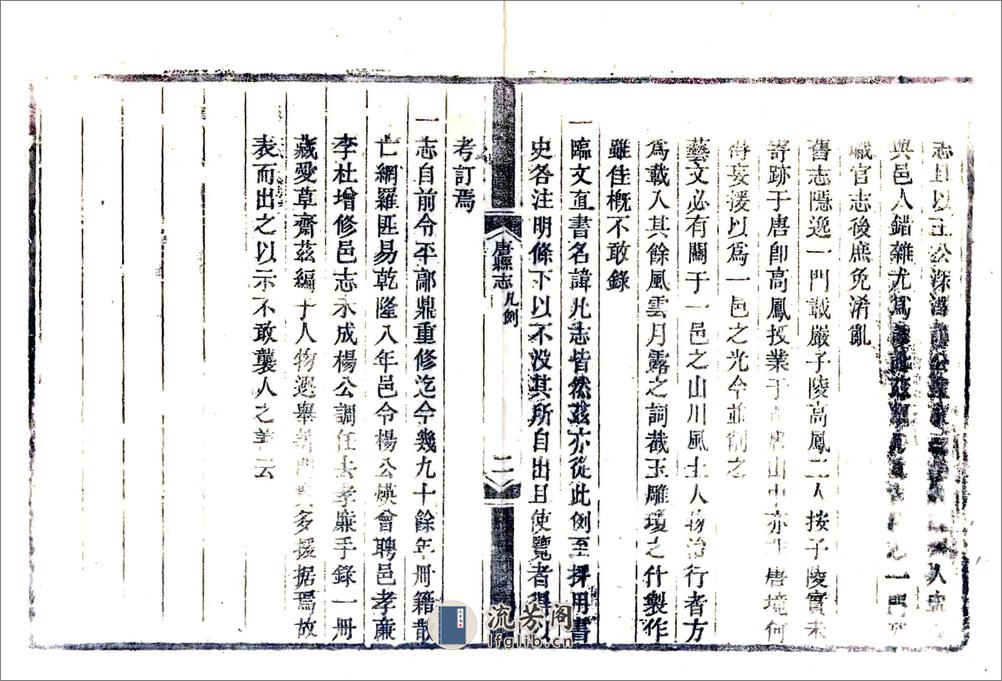 志且以王公
與邑人錯雜尤爲一門
職官志後庶免淆亂
舊志隱逸一門載嚴子陵高鳳二人按子陵實未
寄跡于唐卽高鳳投業于唐山亦非唐境何
得妄援以爲一邑之光今並削之
藝文必有關于一邑之山川風土人物治行者方
爲載入其餘風雲月露之詞截玉雕瓊之什製作
雖佳概不敢錄
一臨文直書名諱凡志皆然茲亦從此例至採用書
史各注明條下以不没其所自出且使覽者得以
唐縣志 凡例 二
考訂焉
一志自前令平鄗鼎重修迄今幾九十餘年冊籍散
亡網羅匪易乾隆八年邑令楊公煐會聘邑孝廉
李杜增修邑志未成楊公調任去孝廉手錄一冊
藏愛草齋茲編于人物選舉多援据焉故
表而出之以示不敢襲人之善云
流芳阁
lfglib.cn